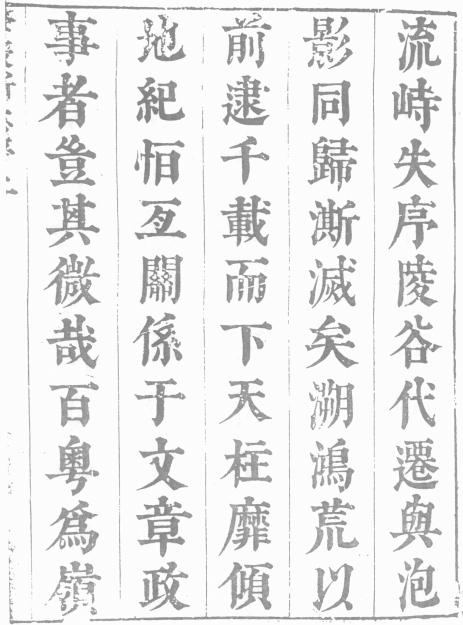 流峙失序陵谷代遷與泡
影同歸澌滅矣溯鴻荒以
前逮千載而下天柱靡傾
地紀恒亙關係于文章政
事者豈其微哉百粤爲嶺